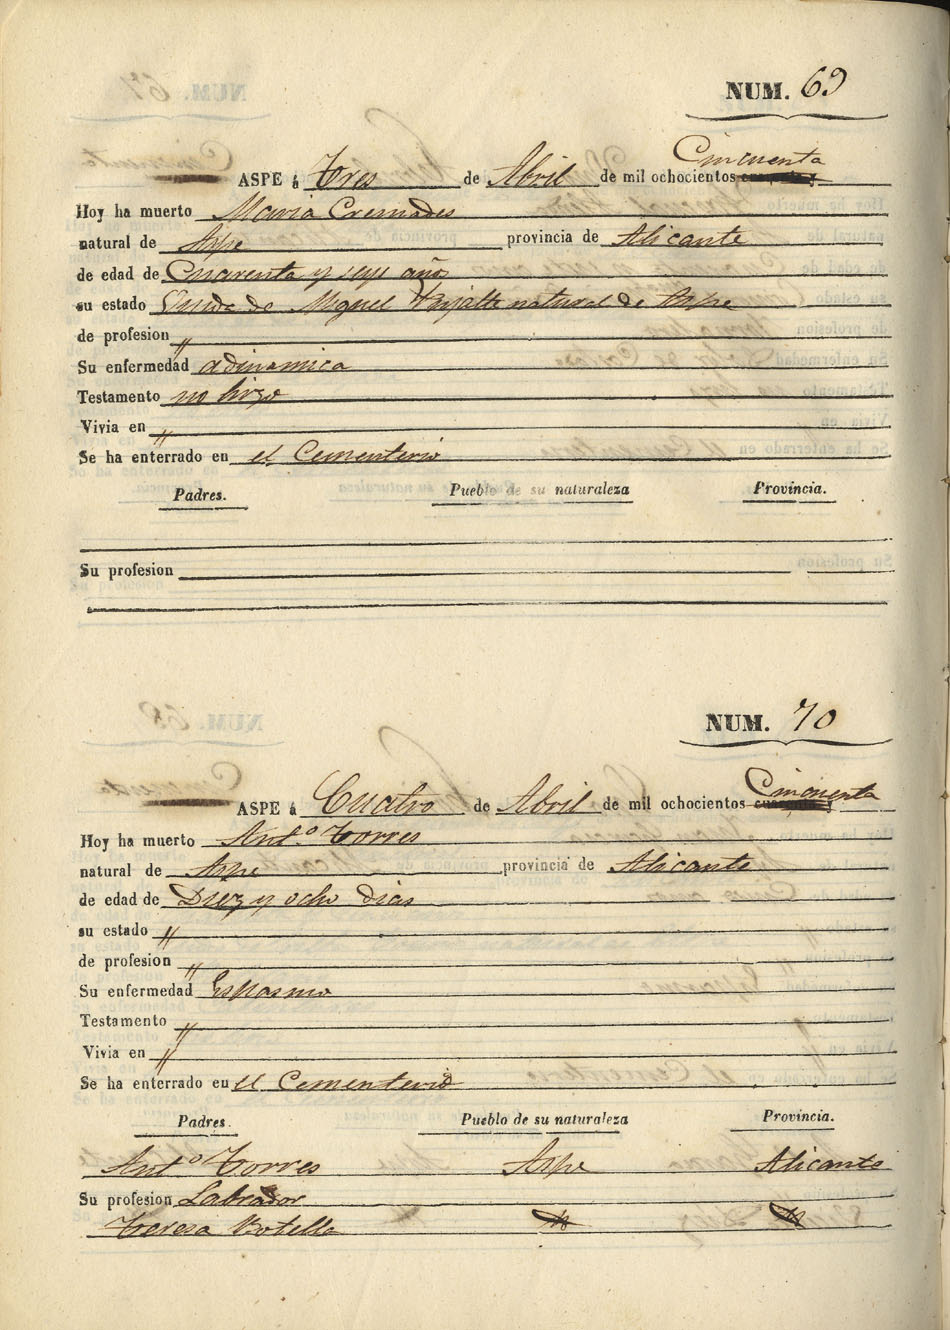 NUM. 69
Cincuenta
ASPE á Tres de Abril de mil ochocientos cuarenta y
Hoy ha muerto Maria Cremades
natural de Aspe provincia de Alicante
de edad de Cuarenta y seis años
su estado Viuda de Miguel Mijalte natural de Aspe
de profesion "
Su enfermedad adinamica
Testamento no hizo
Vivia en "
Se ha enterrado en el Cementerio
Padres. Pueblo de su naturaleza Provincia.
Su profesion
NUM. 70
Cincuenta
ASPE á Cuatro de Abril de mil ochocientos cuarenta y
Hoy ha muerto Antº Torres
natural de Aspe provincia de Alicante
de edad de Diez y ocho dias
su estado "
de profesion "
Su enfermedad Espasmo
Testamento "
Vivia en "
Se ha enterrado en el Cementerio
Padres. Pueblo de su naturaleza Provincia.
Antº Torres Aspe Alicante
Su profesion Labrador
Teresa Botella